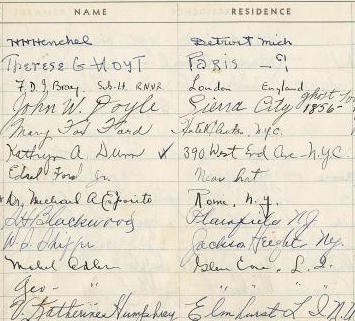 NAME RESIDENCE
HHHenchel Detroit Mich
THERESE G HOYT PARIS
F.D.J. Bray, Sub-Lt. RNVR London England
John W. Doyle Sierra City ghost town 1856-
Mary Fox Ford Hotel N.Y.C.
Kathryn A. Dunn ✓ 390 West End Ave - N.Y.C.
Edsel Ford Jr.
Dr. Michael A. Esposito Rome, N.Y.
Blackwood Plainfield NJ
Jackson Heights Ny.
Mabel Glen Cove, L.I.
Geo - " " " "
Katherine Humphrey Elmhurst L I N.Y.